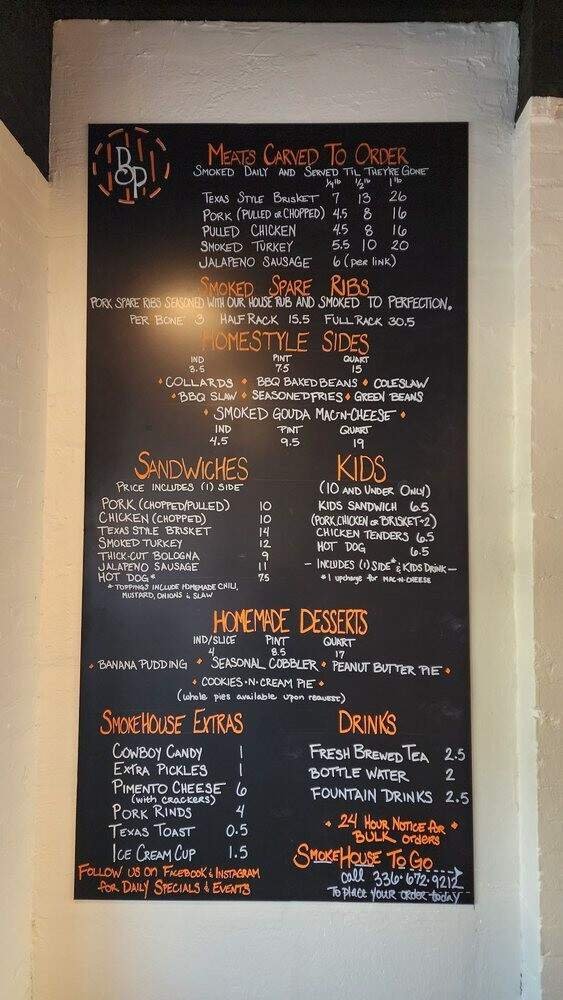 BOP
MEATS CARVED TO ORDER
SMOKED DAILY AND SERVED TIL THEY'RE GONE
1/4 lb 1/2 lb 1 lb
TEXAS STYLE BRISKET 7 13 26
PORK (PULLED OR CHOPPED) 4.5 8 16
PULLED CHICKEN 4.5 8 16
SMOKED TURKEY 5.5 10 20
JALAPENO SAUSAGE 6 (PER LINK)
SMOKED SPARE RIBS
PORK SPARE RIBS SEASONED WITH OUR HOUSE RUB AND SMOKED TO PERFECTION.
PER BONE 3 HALF RACK 15.5 FULL RACK 30.5
HOMESTYLE SIDES
IND PINT QUART
3.5 7.5 15
• COLLARDS • BBQ BAKED BEANS • COLESLAW
• BBQ SLAW • SEASONED FRIES • GREEN BEANS
• SMOKED GOUDA MAC-N-CHEESE •
IND PINT QUART
4.5 9.5 19
SANDWICHES
PRICE INCLUDES (1) SIDE
PORK (CHOPPED/PULLED) 10
CHICKEN (CHOPPED) 10
TEXAS STYLE BRISKET 14
SMOKED TURKEY 12
THICK-CUT BOLOGNA 9
JALAPENO SAUSAGE 11
HOT DOG* 7.5
* TOPPINGS INCLUDE HOMEMADE CHILI,
MUSTARD, ONIONS & SLAW
KIDS
(10 AND UNDER ONLY)
KIDS SANDWICH 6.5
(PORK, CHICKEN OR BRISKET+2)
CHICKEN TENDERS 6.5
HOT DOG 6.5
- INCLUDES (1) SIDE* & KIDS DRINK -
*1 upcharge for MAC-N-CHEESE
HOMEMADE DESSERTS
IND/SLICE PINT QUART
4 8.5 17
• BANANA PUDDING • SEASONAL COBBLER • PEANUT BUTTER PIE •
• COOKIES-N-CREAM PIE •
(whole pies available upon request)
SMOKEHOUSE EXTRAS
COWBOY CANDY 1
EXTRA PICKLES 1
PIMENTO CHEESE 6
(with crackers)
PORK RINDS 4
TEXAS TOAST 0.5
ICE CREAM CUP 1.5
FOLLOW US ON FACEBOOK & INSTAGRAM
FOR DAILY SPECIALS & EVENTS
DRINKS
FRESH BREWED TEA 2.5
BOTTLE WATER 2
FOUNTAIN DRINKS 2.5
• 24 HOUR NOTICE FOR •
BULK orders
SMOKEHOUSE TO GO
call 336-672-9212
To place your order today